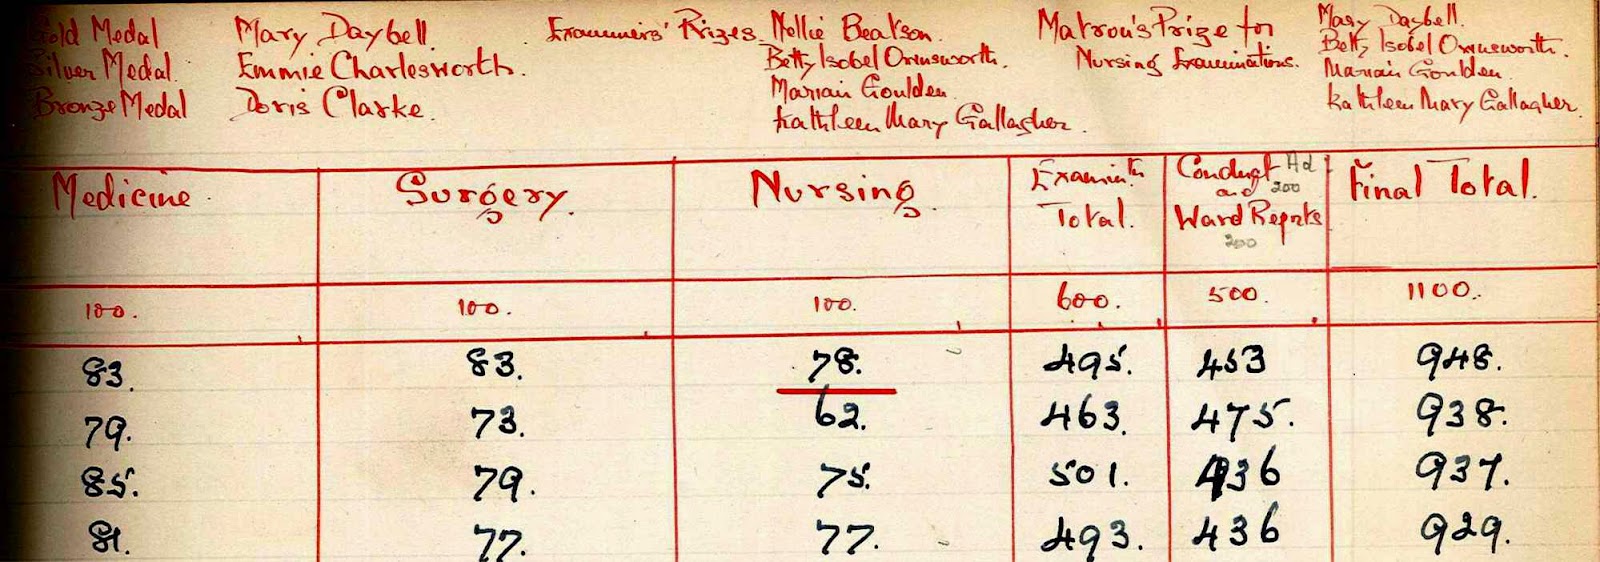 Gold Medal Mary Daybell. Examiners' Prizes. Nellie Beatson. Matron's Prize for Mary Daybell.
Silver Medal. Emmie Charlesworth. Betty Isobel Ormsworth. Nursing Examinations. Betty Isobel Ormsworth.
Bronze Medal Doris Clarke. Marian Goulden. Marian Goulden.
Kathleen Mary Gallagher. Kathleen Mary Gallagher.
Medicine. Surgery. Nursing. Examintn Total. Conduct and Ward Reports Ad 200 200 Final Total.
100. 100. 100. 600. 500. 1100.
83. 83. 78. 495. 453 948.
79. 73. 62. 463. 475. 938.
85. 79. 75. 501. 436 937.
81. 77. 77. 493. 436 929.